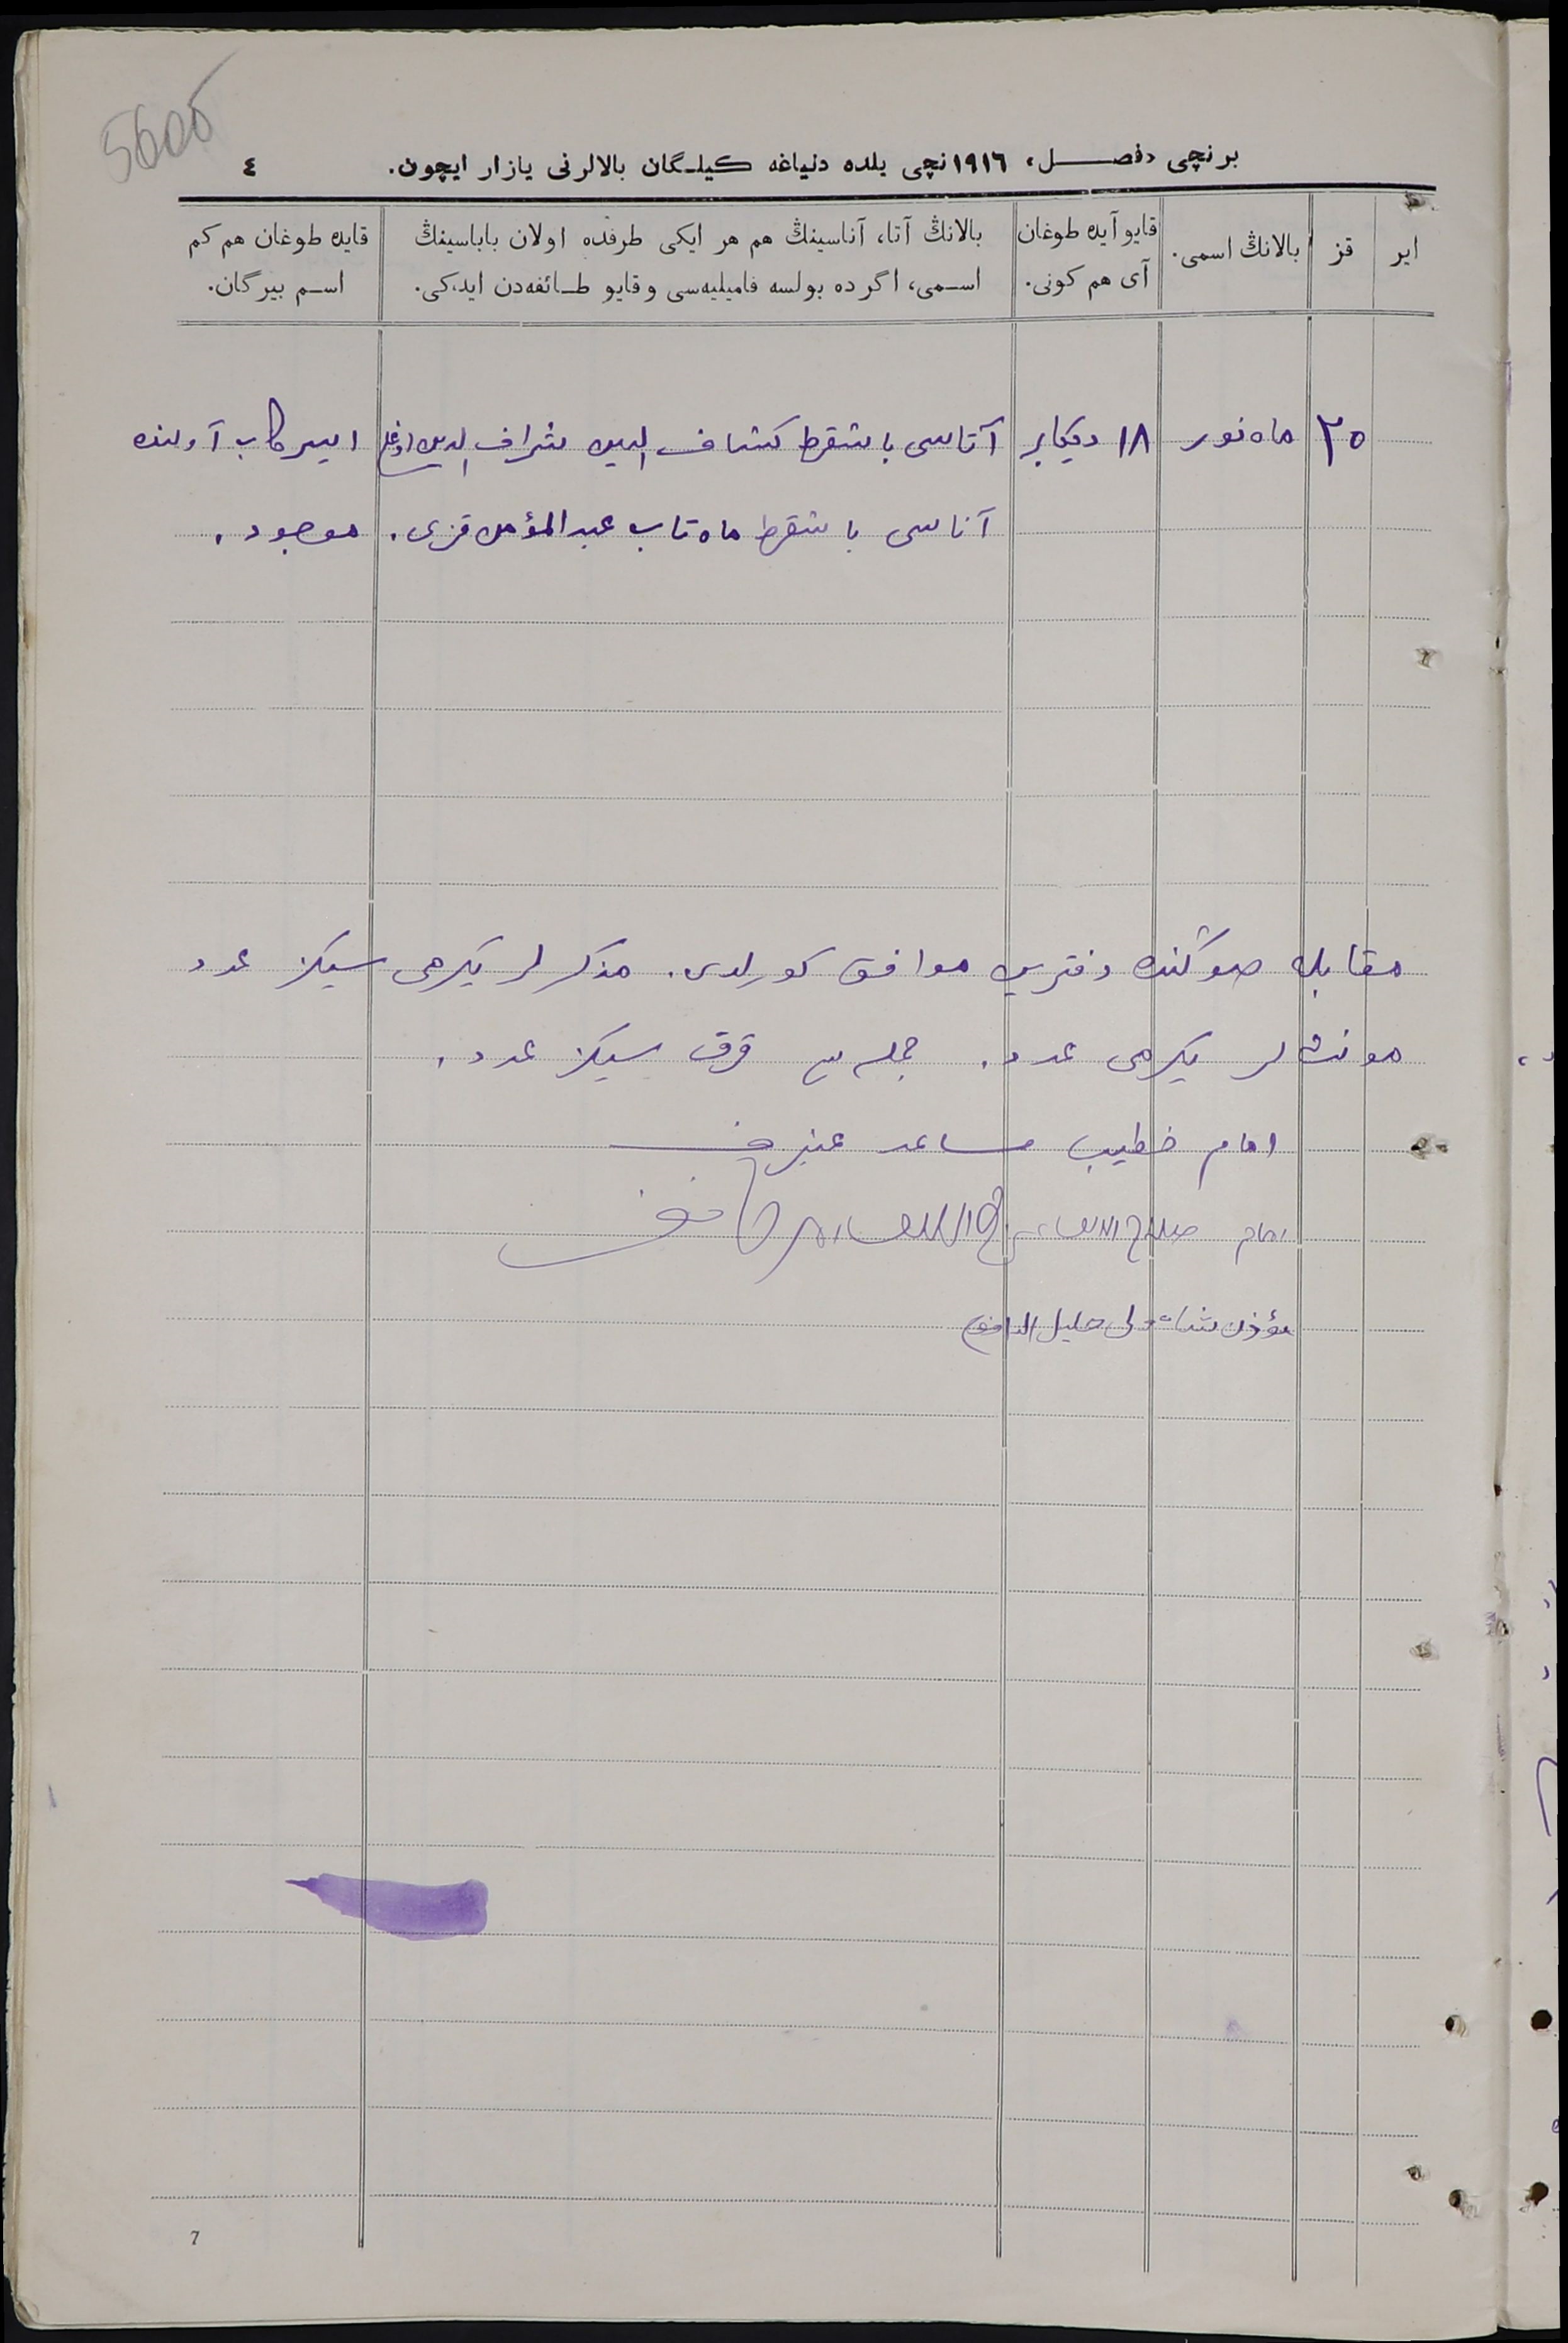 5605
برنچی «فصـــــل» ١٩١٦نچی یلده دنیاغه کیلـگان بالالرنی یازار ایچون.
٤
ایر
قز
بالانڭ اسمی.
قایو آیده طوغان
آی هم کونی.
بالانڭ آتا، آناسینڭ هم هر ایکی طرفده اولان باباسینڭ
اسـمی، اگر ده بولسه فامیلیه‌سی و قایو طـائفه‌دن ایدکی.
قایده طوغان هم کم
اسـم بیرگان.
٢٠
ماه نور
١٨ دیکابر
آتاسی باشقرط کشاف الدین شراف الدین اوغلی
آولنده
آناسی باشقرط ماه تاب عبد المؤمن قزی.
موجود.
مقابله صوڭنده دفترین موافق کورلدی. مذکرلر یکرمی سیکز عدد
مونثلر یکرمی عدد. جمله سی قرق سیکز عدد.
امام خطیب مساعد
امام صلاح الدین
مؤذن شاه ولی خلیل
7